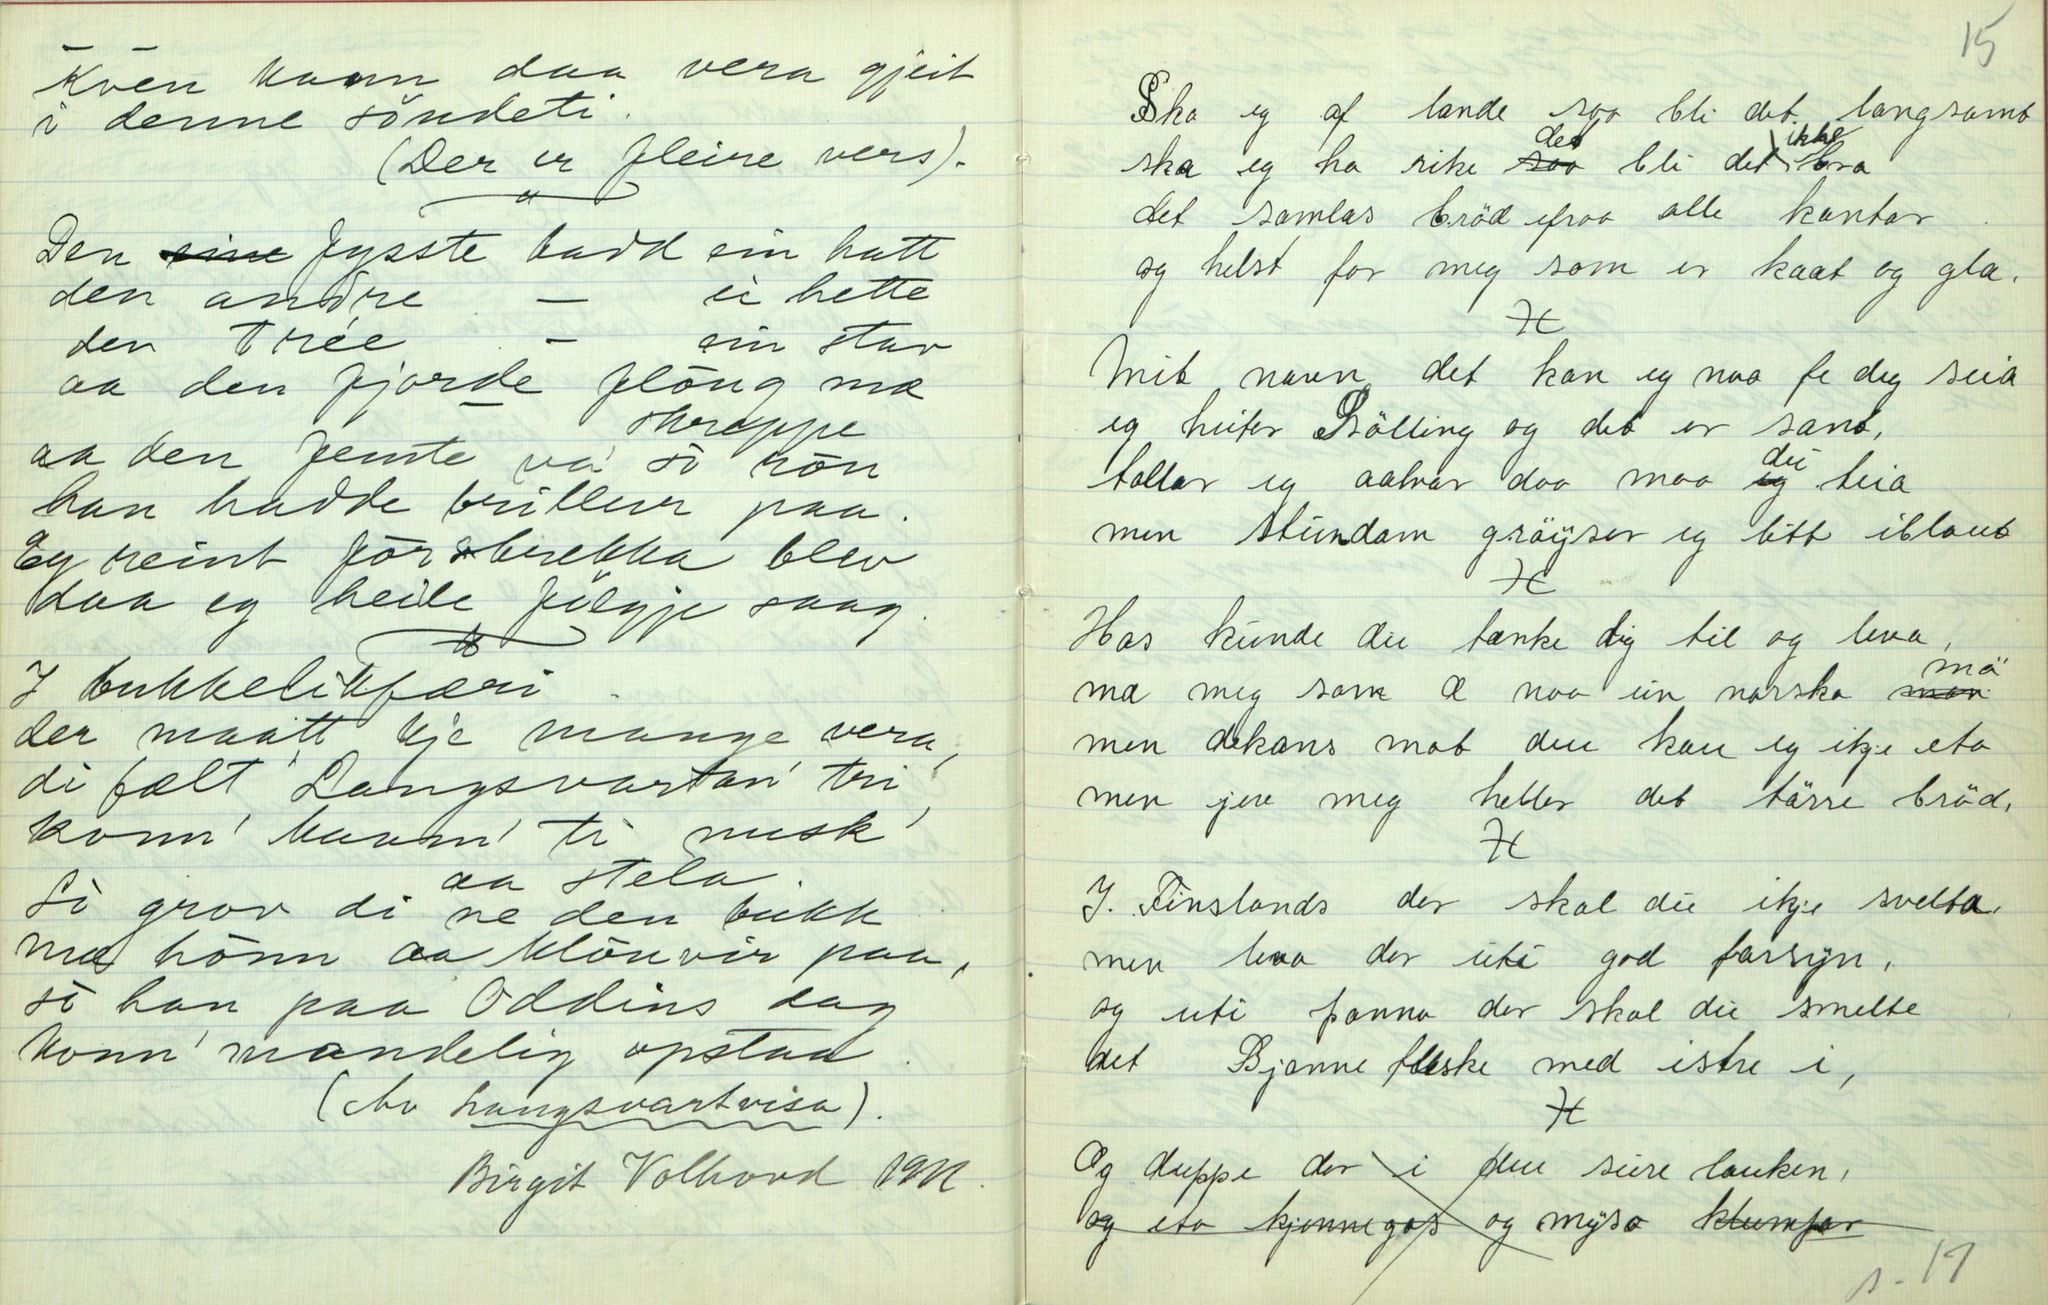 Kven kann daa vera gjeit
i denne söndeti.
(Der er fleire vers).
Den eine fysste badd ein hatt
den andre — ei hette
den trée — ein stav
aa den fjorde flöug mæ
skreppe
aa den femte va' so rön
han hadde briller paa.
Eg reint förstrekka blev
daa eg heile fölgje saag.
I bukkelikfæri
der maatt' kje mange vera,
di fælt' Langsvartan' tri
konn' kaam' ti nusk'
aa stela
Sö grov di ne den bukk
mæ hönn aa klöuvir paa,
sö han paa Oddins dag
konn' mandelig opstaa.
(Av Langsvartvisa).
Birgit Volhovd 1911.
15
Ska eg af lande saa bli det langsamt
det ikke
ska eg ha rike saa bli det bra
det samlas bröd ifraa alle kantar
og helst for meg som er kaat og gla.
Mit navn det kan eg naa fe deg seia
eg heiter Rölling og det er sant,
du
tallar eg aalvar daa maa eg teia
men stundom gröyser eg litt iblant
Hos kunde du tænke dig til og leva,
mö
mæ meg som æ naa ein norska man
men dekans mat den kan eg ikje eta
men jere meg heller det törre bröd.
I. Finslands der skal du ikje svelta.
men leva der uti god forsyn,
og uti panna der skal du smelte
det Bjønnefleske med istre i,
Og duppe der i den sure lauken,
og eta kjønnegas og myso klumpar
s. 17